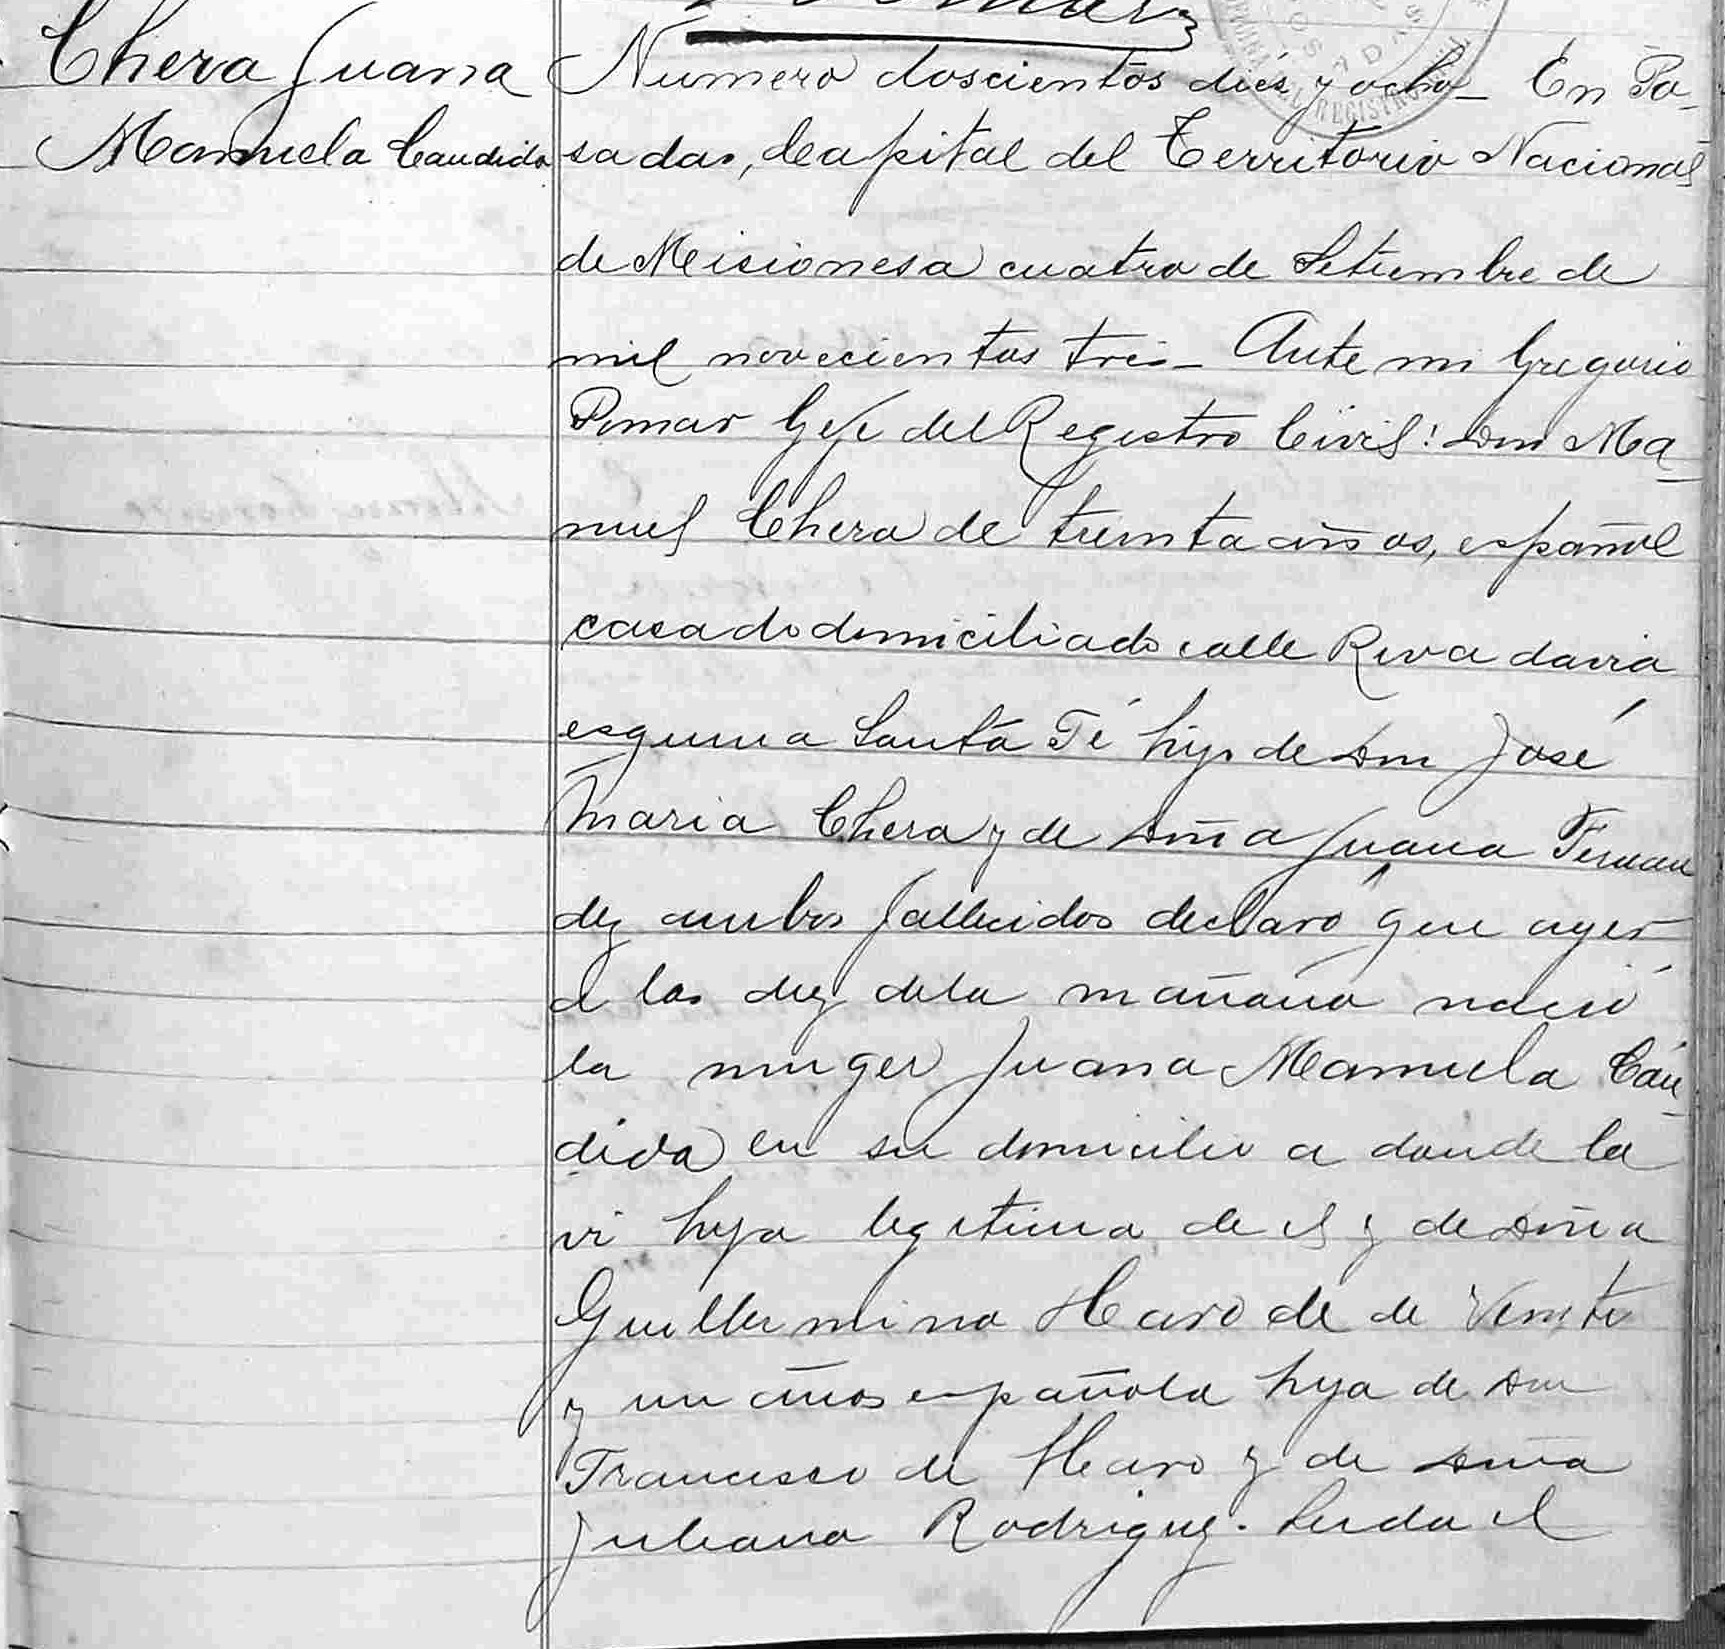 Chera Juana
Manuela Candida
Numero doscientos dies y ocho_ En Po-
sadas, Capital del Territorio Nacional
de Misiones a cuatro de Setiembre de
mil novecientos tres_ Ante mi Gregorio
Pomar Gefe del Registro Civil: Don Ma-
nuel Chera de treinta años, español
casado domiciliado calle Rivadavia
esquina Santa Fé hijo de Don José
Maria Chera y de Doña Juana Fernan
dez ambos fallecidos declaró que ayer
a las diez dela mañana nació
la muger Juana Manuela Cán-
dida en su domicilio a donde la
vi hija legitima de el y de Doña
Guillermina Haro de de Veinte
y un años española hija de Don
Francisco de Haro y de Doña
Juliana Rodriguez. Leida el